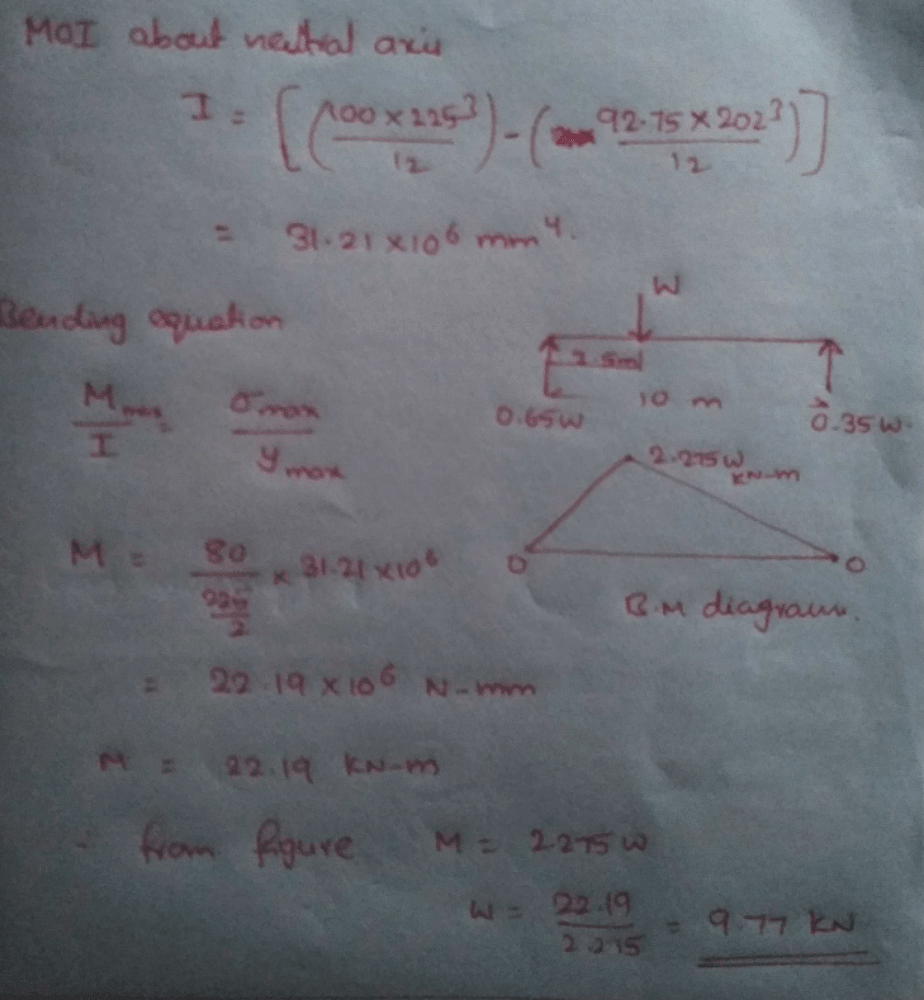 MOI about neutral axis
I = [(100 × 225³ / 12) - (92.75 × 202³ / 12)]
= 31.21 × 10⁶ mm⁴.
Bending equation
W
3.5m
10 m
0.65W
0.35W.
M max / I = σmax / ymax
2.275W
KN-m
0
0
B.M diagram.
M = 80 / (225/2) × 31.21 × 10⁶
= 22.19 × 10⁶ N-mm
M = 22.19 KN-m
∴ from figure M = 2.275 W
W = 22.19 / 2.275 = 9.77 KN